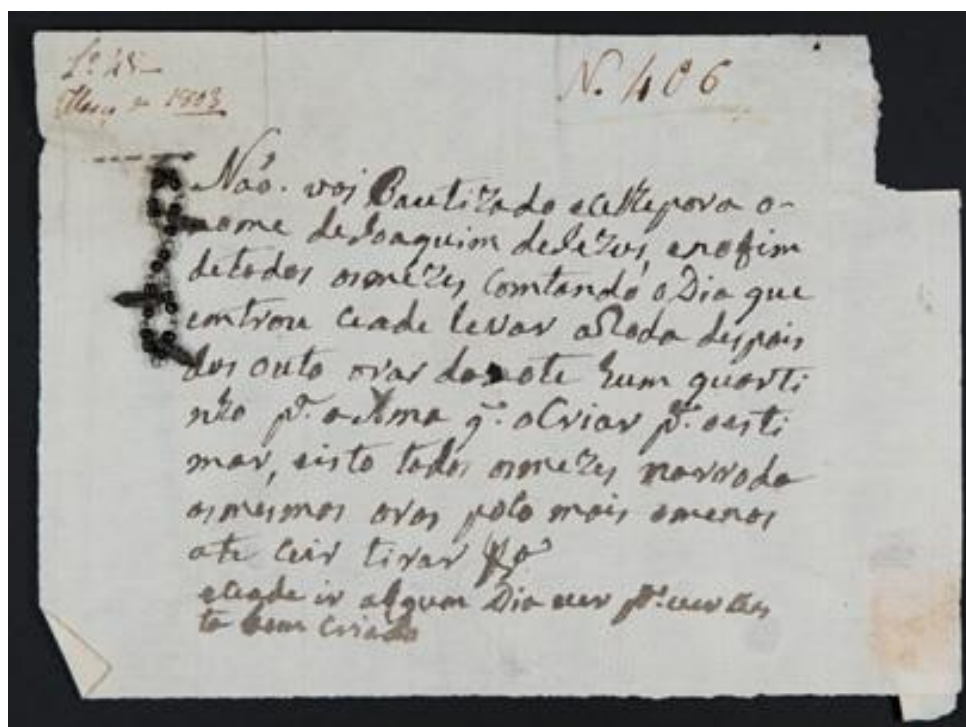 Lº 45
Março de 1803
N. 406
Não. vai Bautizado e celhe pora o
nome de Joaquim de Jezus, e no fim
de todos os mezes Comtando o Dia que
emtrou ceade levar a Roda despois
das outo oras da note hum quarti
nho pª. a Ama q. o Criar pª. o esti
mar, e isto todos os mezes na rroda
as mesmas oras polo mais o menos
ate ceir tirar
e ceade ir algum Dia ver pª. ver ces
ta bem Criado